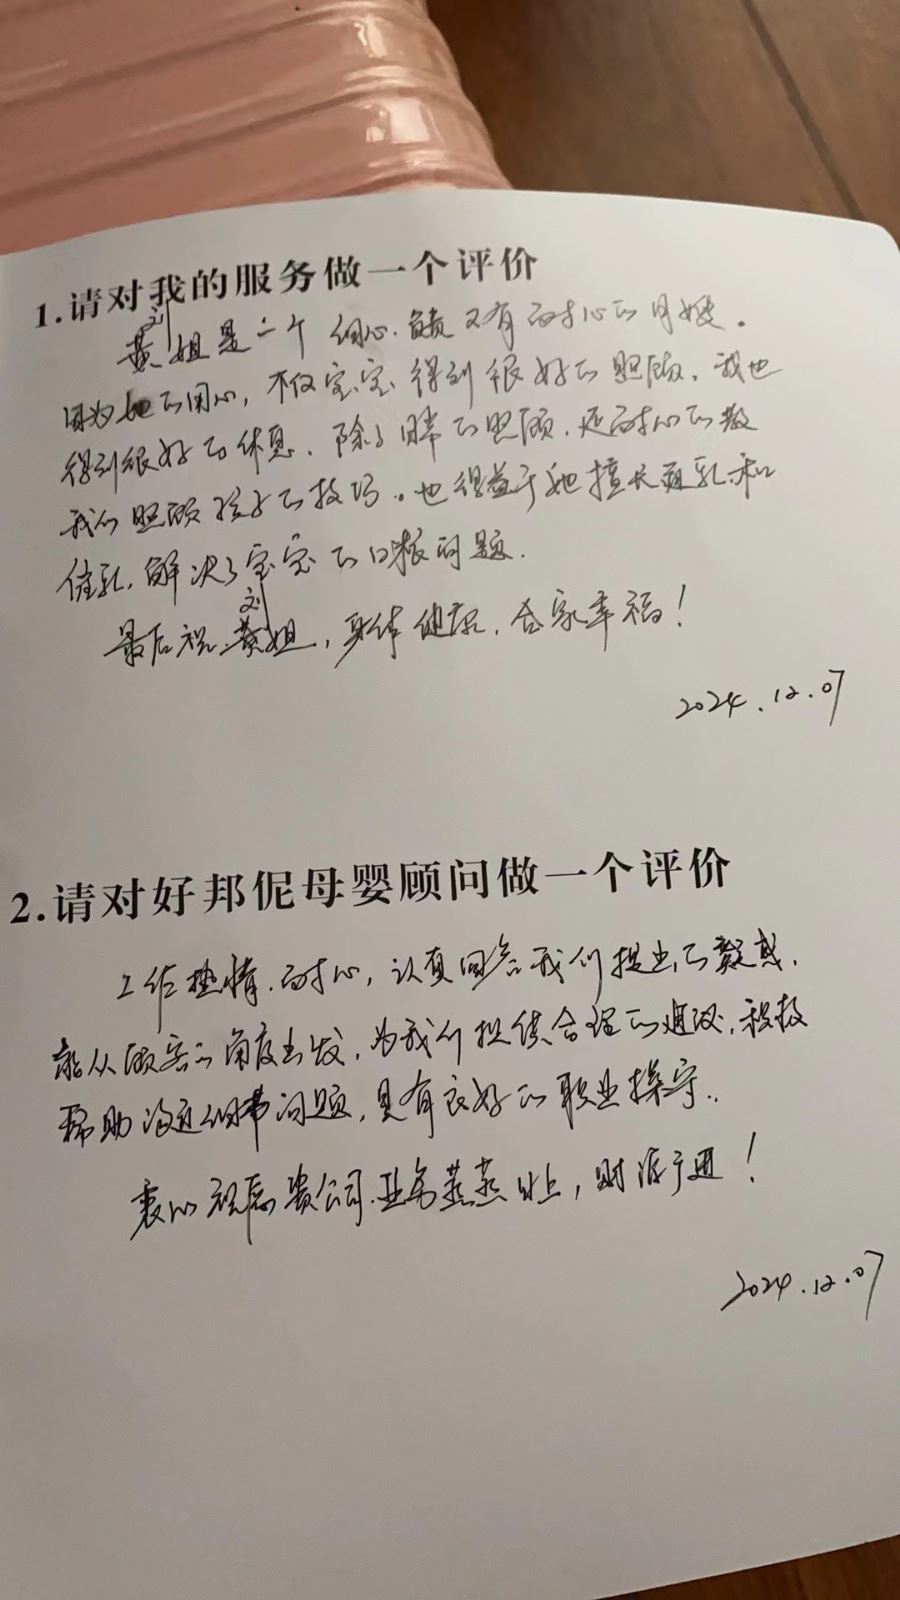 1.请对我的服务做一个评价
刘
黄姐是一个细心、负责又有耐心的月嫂。
因为她的用心，不仅宝宝得到很好的照顾，我也
得到很好的休息、除了日常的照顾，还耐心的教
我们照顾孩子的技巧。也得益于她擅长通乳和
催乳，解决了宝宝的口粮问题.
刘
最后祝黄姐，身体健康，合家幸福！
2024.12.07
2.请对好邦伲母婴顾问做一个评价
工作热情、耐心，认真回答我们提出的疑惑.
能从顾客的角度出发，为我们提供合理的建议，积极
帮助沟通细节问题，具有良好的职业操守.
衷心祝愿贵公司业务蒸蒸日上，财源广进！
2024.12.07